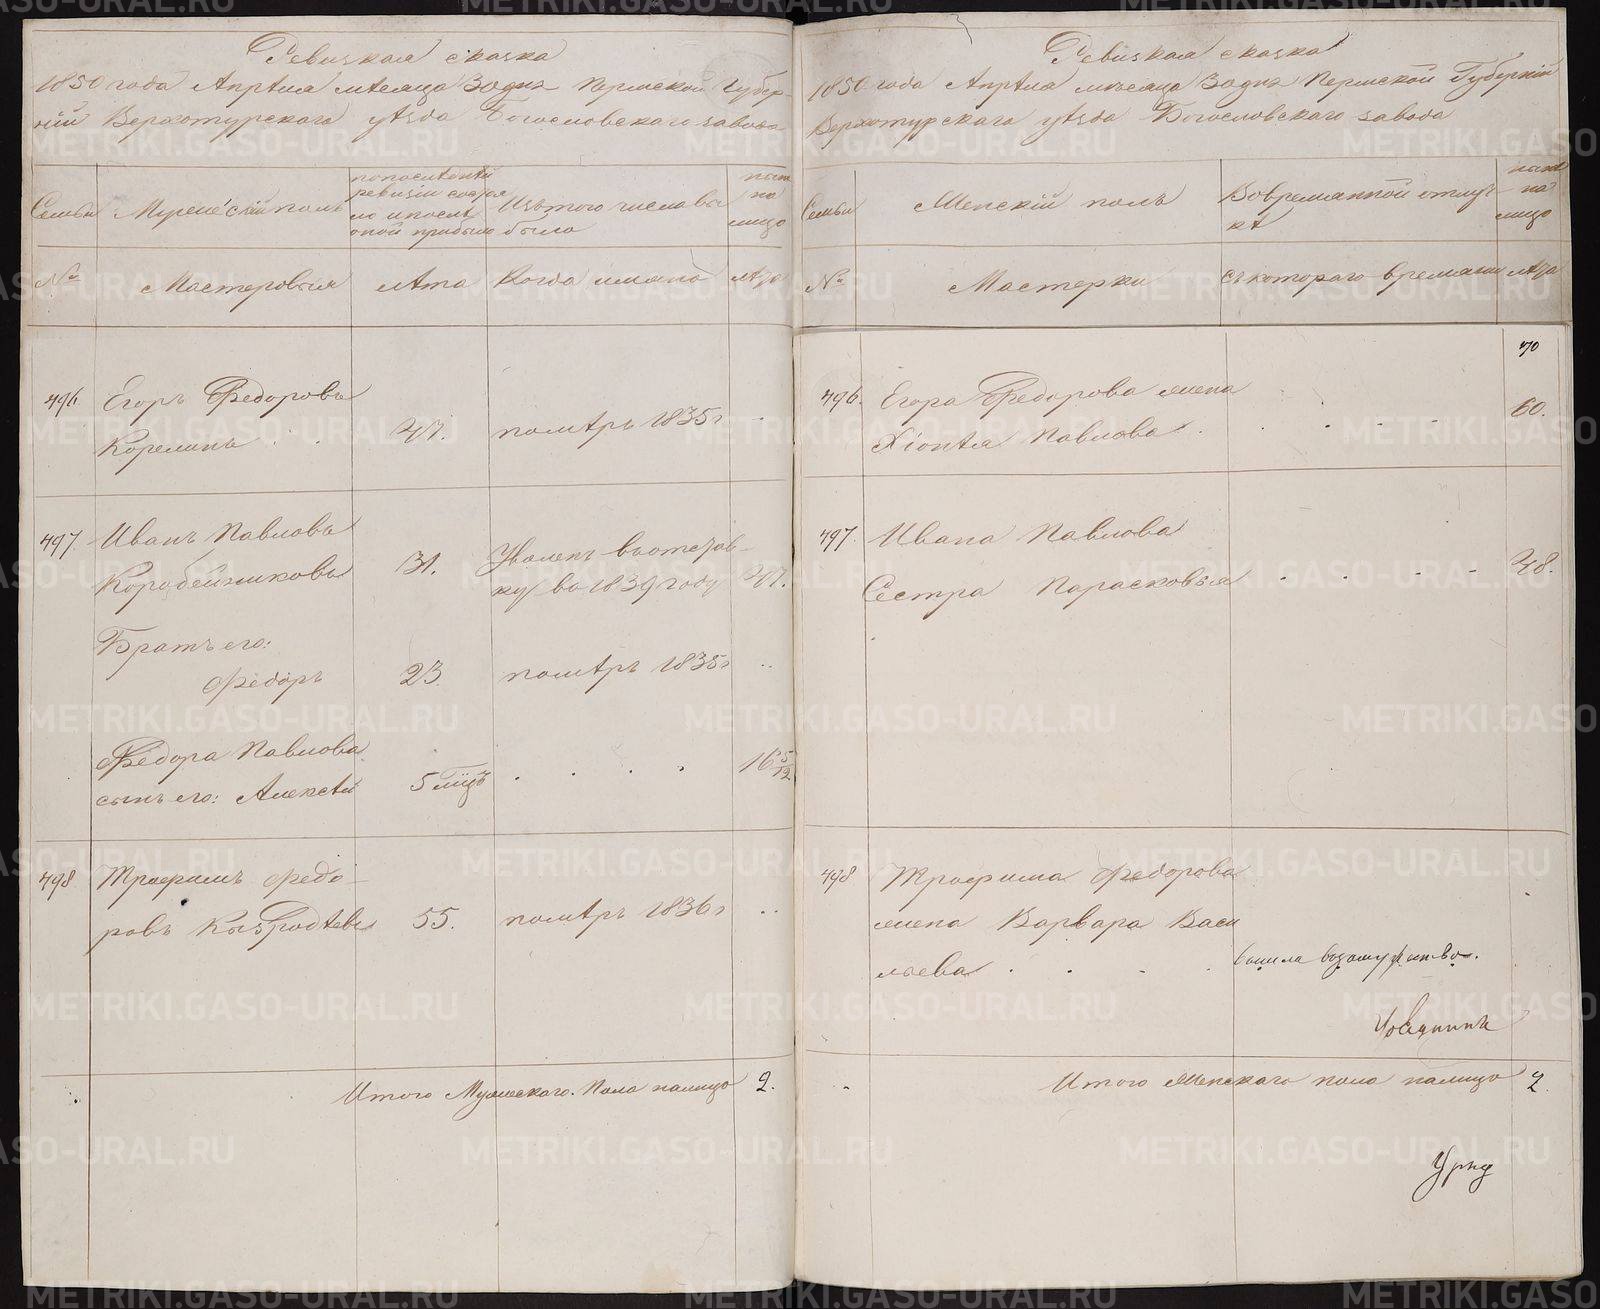 Ревизкая сказка
1850 года Апрѣля мѣсяца 30 дня Пермской Губер-
ніи Верхотурскаго уѣзда Богословскаго завода
Семьи
Мужескій полъ
по последней
ревизіи состоя
ло и послѣ
оной прибыло
Изъ того числа вы
было
ныне
на
лицо
№
Мастеровыя
лѣта
Когда имяно
лѣта
496.
Егоръ Федоровъ
Корелинъ
47.
помѣръ 1835 г
497.
Иванъ Павловъ
Коробейниковъ
31.
Уволенъ въ отстав-
ку въ 1839 году
47.
Братъ его:
Федоръ
23.
помѣръ 1835 г
Федора Павлова
сынъ его: Алексѣй
5 мцъ
16 5/12
498
Трофимъ Федо-
ровъ
55.
помѣръ 1836 г
Итого Мужескаго Пола налицо
2.
Ревизкая сказка
1850 года Апрѣля мѣсяца 30 дня Пермской Губерніи
Верхотурскаго уѣзда Богословскаго завода
Семьи
Женскій полъ
Во временной отлуч
кѣ
ныне
на
лицо
№
Мастерки
съ котораго времяни
лѣта
70
496.
Егора Федорова жена
Хіонія Павлова
60.
497.
Ивана Павлова
Сестра Парасковья
48.
498
Трофима Федорова
жена Варвара Васи
льева
вышла въ замужство.
Итого Женскаго пола налицо
2.
METRIKI.GASO-URAL.RU